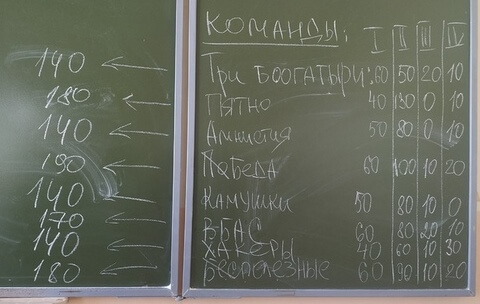 КОМАНДЫ: I II III IV
140 ← Три Боогатыри: 60 50 20 10
180 ← Пятно 40 130 0 10
140 ← Амнистия 50 80 0 10
190 ← Победа 60 100 10 20
140 ← Камушки 50 80 10 0
170 ← ВБАС 60 80 20 10
140 ← ХАКЕРЫ 40 60 10 30
180 ← бесполезные 60 90 10 20